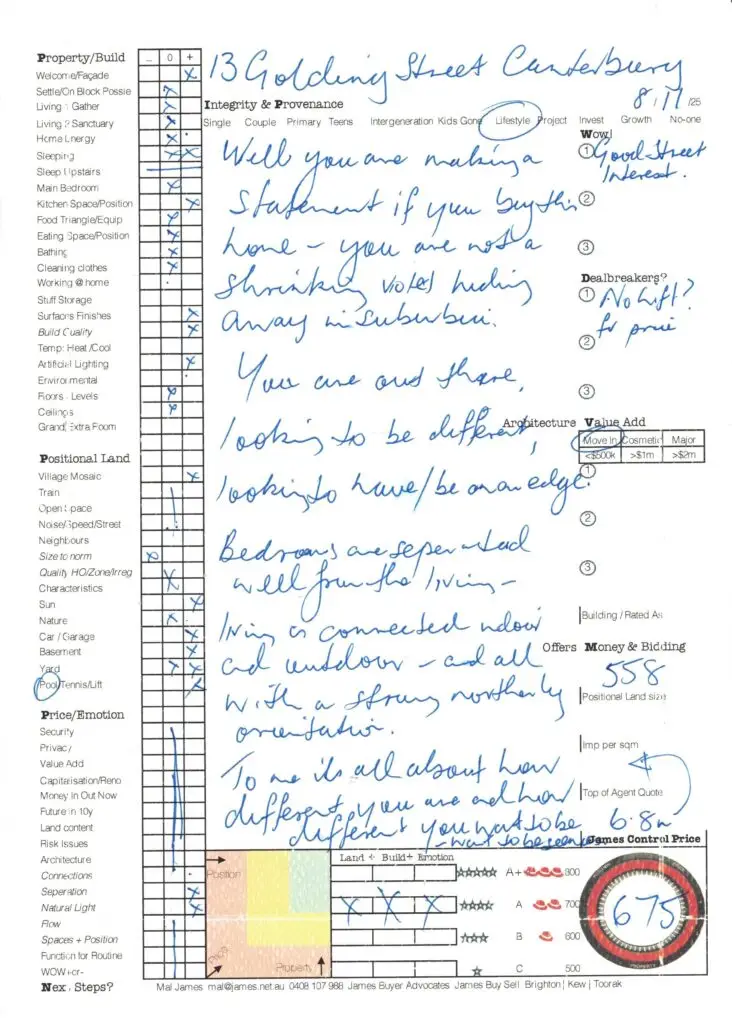 Property/Build - 0 +
13 Golding Street Canterbury
8/11/25
Welcome/Façade
Settle/On Block Possie
Living 1 Gather
Living 2 Sanctuary
Home Energy
Sleeping
Sleep Upstairs
Main Bedroom
Kitchen Space/Position
Food Triangle/Equip
Eating Space/Position
Bathing
Cleaning clothes
Working @ home
Stuff Storage
Surfaces Finishes
Build Quality
Temp: Heat/Cool
Artificial Lighting
Environmental
Floors - Levels
Ceilings
Grand, Extra Room
Positional Land
Village Mosaic
Train
Open Space
Noise/Speed/Street
Neighbours
Size to norm
Quality HO/Zone/Irreg
Characteristics
Sun
Nature
Car / Garage
Basement
Yard
Pool/Tennis/Lift
Price/Emotion
Security
Privacy
Value Add
Capitalisation/Reno
Money In Out Now
Future in 10y
Land content
Risk Issues
Architecture
Connections
Seperation
Natural Light
Flow
Spaces + Position
Function for Routine
WOW+or-
Next Steps?
Integrity & Provenance
Single Couple Primary Teens Intergeneration Kids Gone Lifestyle Project Invest Growth No-one
Well you are making a
statement if you buy this
home - you are not a
shrinking violet hiding
away in suburbia.
You are out there,
looking to be different,
looking to have/be on an edge.
Bedrooms are seperated
well from the living -
living is connected indoor
and outdoor - and all
with a strong northerly
orientation.
To me its all about how
different you are and how
different you want to be
- want to be seen
Wow!
1 Good Street
Interest.
2
3
Dealbreakers?
1 No Lift?
for price
2
3
Architecture Value Add
Move In Cosmetic Major
<$500k >$1m >$2m
1
2
3
Building / Rated As
Offers Money & Bidding
558
Positional Land size
Imp per sqm
Top of Agent Quote
6.8m
James Control Price
675
Position
Price
Property
Land + Build+ Emotion
A+ 800
A 700
B 600
C 500
Mal James mal@james.net.au 0408 107 988 James Buyer Advocates James Buy Sell Brighton | Kew | Toorak